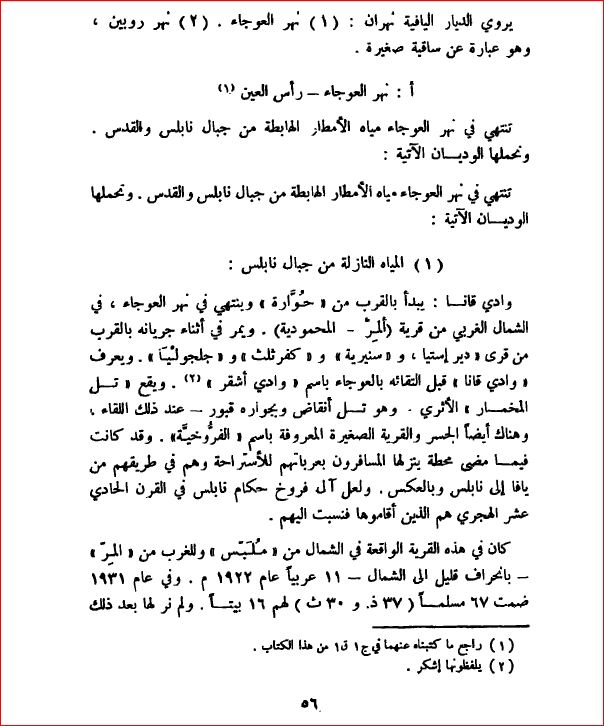 يروي الديار اليافية نهران : (١) نهر العوجاء . (٢) نهر روبين ،
وهو عبارة عن ساقية صغيرة .
أ : نهر العوجاء – رأس العين (١)
تنتهي في نهر العوجاء مياه الأمطار الهابطة من جبال نابلس والقدس .
وتحملها الوديـان الآتية :
تنتهي في نهر العوجاء مياه الأمطار الهابطة من جبال نابلس والقدس . وتحملها
الوديـان الآتية :
(١) المياه النازلة من جبال نابلس :
وادي قانـا : يبدأ بالقرب من « حُوَّارة » وينتهي في نهر العوجاء ، في
الشمال الغربي من قرية (ألمِرّ – المحمودية) . ويمر في أثناء جريانه بالقرب
من قرى « دير إستيا ، و « سنيرية » و « كفرثلث » و « جلجولْيَا » . ويعرف
« وادي قانا » قبل التقائه بالعوجاء باسم « وادي أشقر » (٢) . ويقع « تـل
المخمـار » الأثري . وهو تـل أنقاض وبجواره قبور – عند ذلك اللقاء ،
وهناك أيضاً الجسر والقرية الصغيرة المعروفة باسم « الفرُّوخيَّة» . وقد كانت
فيمـا مضى محطة ينزلها المسافرون بعرباتهم للأستراحة وهم في طريقهم من
يافا إلى نابلس وبالعكس . ولعل آل فروخ حكام نابلس في القرن الحادي
عشر الهجري هم الذين أقاموها فنسبت اليهم .
كان في هذه القرية الواقعة في الشمال من « مُلَبّس » وللغرب من « المِرّ »
– بانحراف قليل الى الشمال – ١١ عربياً عام ١٩٢٢ م . وفي عام ١٩٣١
ضمت ٦٧ مسلمـاً ( ٣٧ ذ. و ٣٠ ث ) لهم ١٦ بيتـاً . ولم نر لها بعد ذلك
(١) راجع ما كتبناه عنهما في ج١ ق١ من هذا الكتاب .
(٢) يلفظونها إشكر .
٥٦